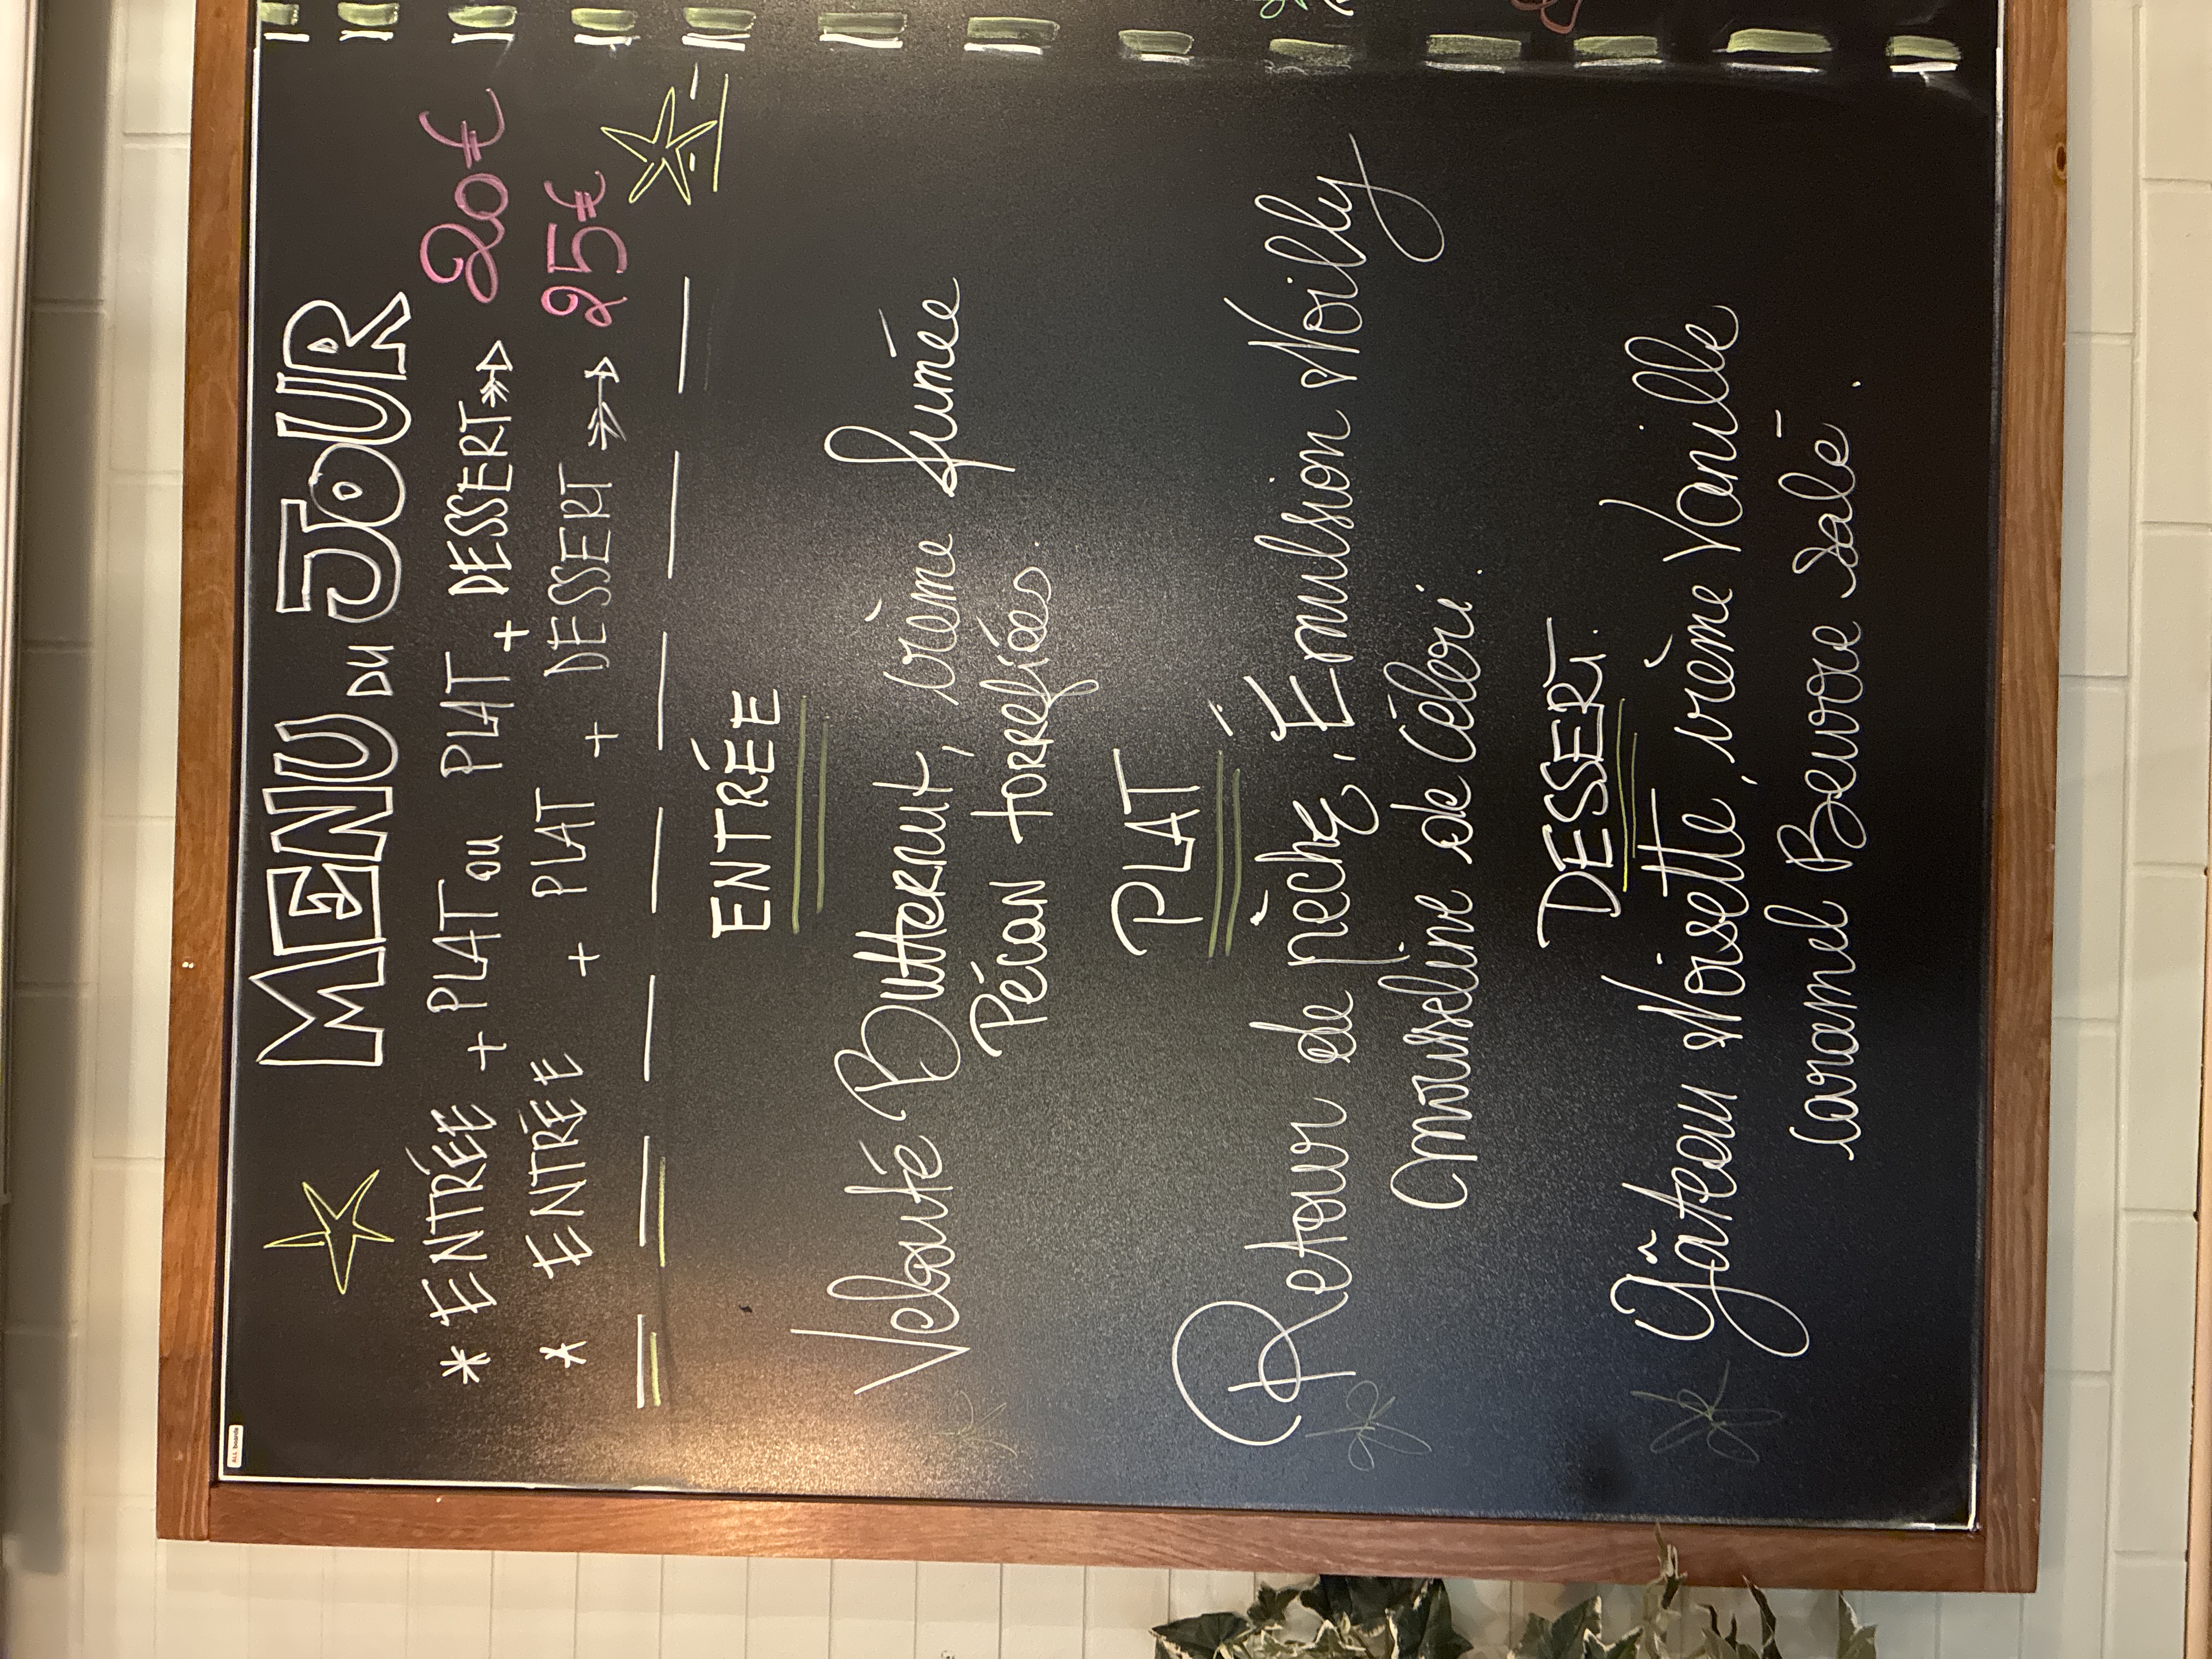 MENU DU JOUR
* ENTRÉE + PLAT ou PLAT + DESSERT 20€
* ENTRÉE + PLAT + DESSERT 25€
ENTRÉE
Velouté Butternut, crème fumée
Pécan torréfiées.
PLAT
Retour de pêche, Émulsion Noilly
mousseline de Céleri.
DESSERT.
Gâteau Noisette, crème Vanille
caramel Beurre salé.
ALL boards